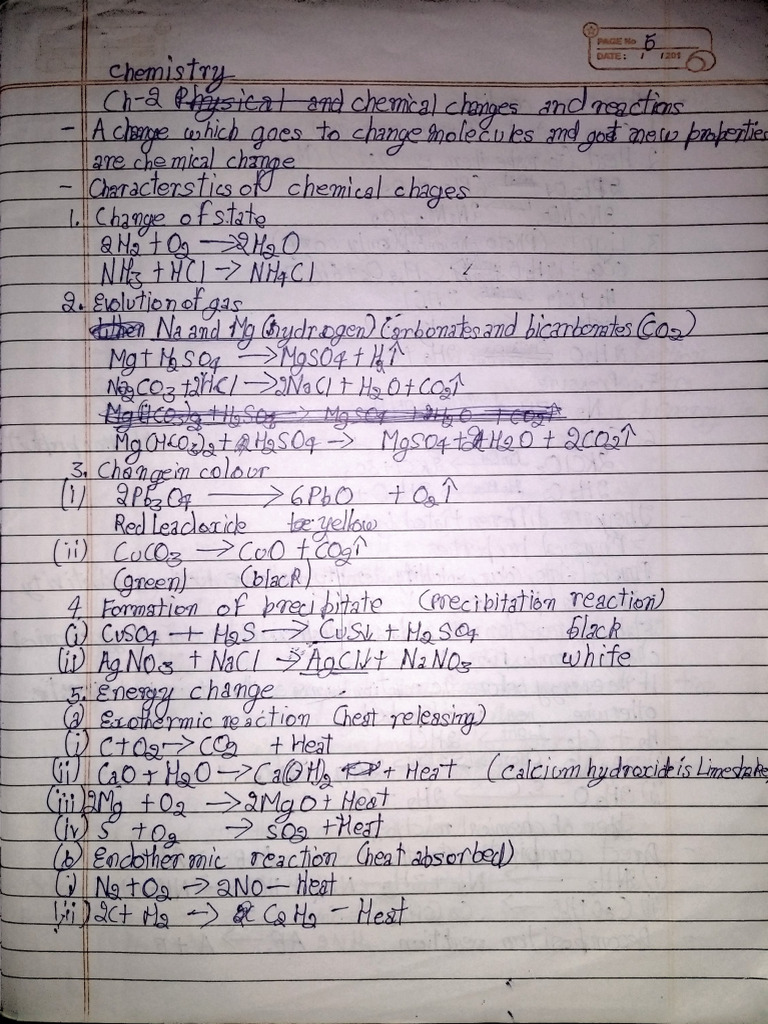 PAGE No 5
DATE: / /201
Chemistry
Ch-2 Physical and chemical changes and reactions
- A change which goes to change molecules and got new properties
are chemical change
- Characterstics of chemical chages
1. Change of state
2H2 + O2 → 2H2O
NH3 + HCl → NH4Cl
2. Evolution of gas
Na and Mg (hydrogen) Carbonates and bicarbonates (CO2)
Mg + H2SO4 → MgSO4 + H2↑
Na2CO3 + 2HCl → 2NaCl + H2O + CO2↑
Mg(HCO3)2 + H2SO4 → MgSO4 + 2H2O + CO2↑
Mg(HCO3)2 + H2SO4 → MgSO4 + 2H2O + 2CO2↑
3. Change in colour
(i) 2Pb3O4 → 6PbO + O2↑
Red Lead oxide yellow
(ii) CuCO3 → CuO + CO2↑
(green) (black)
4 Formation of precipitate (Precipitation reaction)
(i) CuSO4 + H2S → CuS↓ + H2SO4 black
(ii) AgNO3 + NaCl → AgCl↓ + NaNO3 white
5. Energy change
(a) Exothermic reaction (heat releasing)
(i) C + O2 → CO2 + Heat
(ii) CaO + H2O → Ca(OH)2 + Heat (calcium hydroxide is Lime
(iii) 2Mg + O2 → 2MgO + Heat
(iv) S + O2 → SO2 + Heat
(b) Endothermic reaction (heat absorbed)
(i) N2 + O2 → 2NO - Heat
(ii) 2C + H2 → C2H2 - Heat